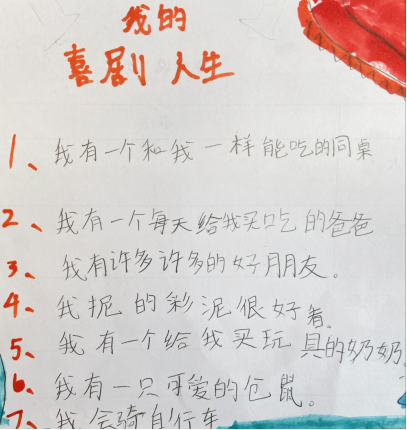 我的
喜剧人生
1、我有一个和我一样能吃的同桌
2、我有一个每天给我买吃的爸爸
3、我有许多许多的好朋友。
4、我扼的彩泥很好看。
5、我有一个给我买玩具的奶奶
6、我有一只可爱的仓鼠。
7、我会骑自行车